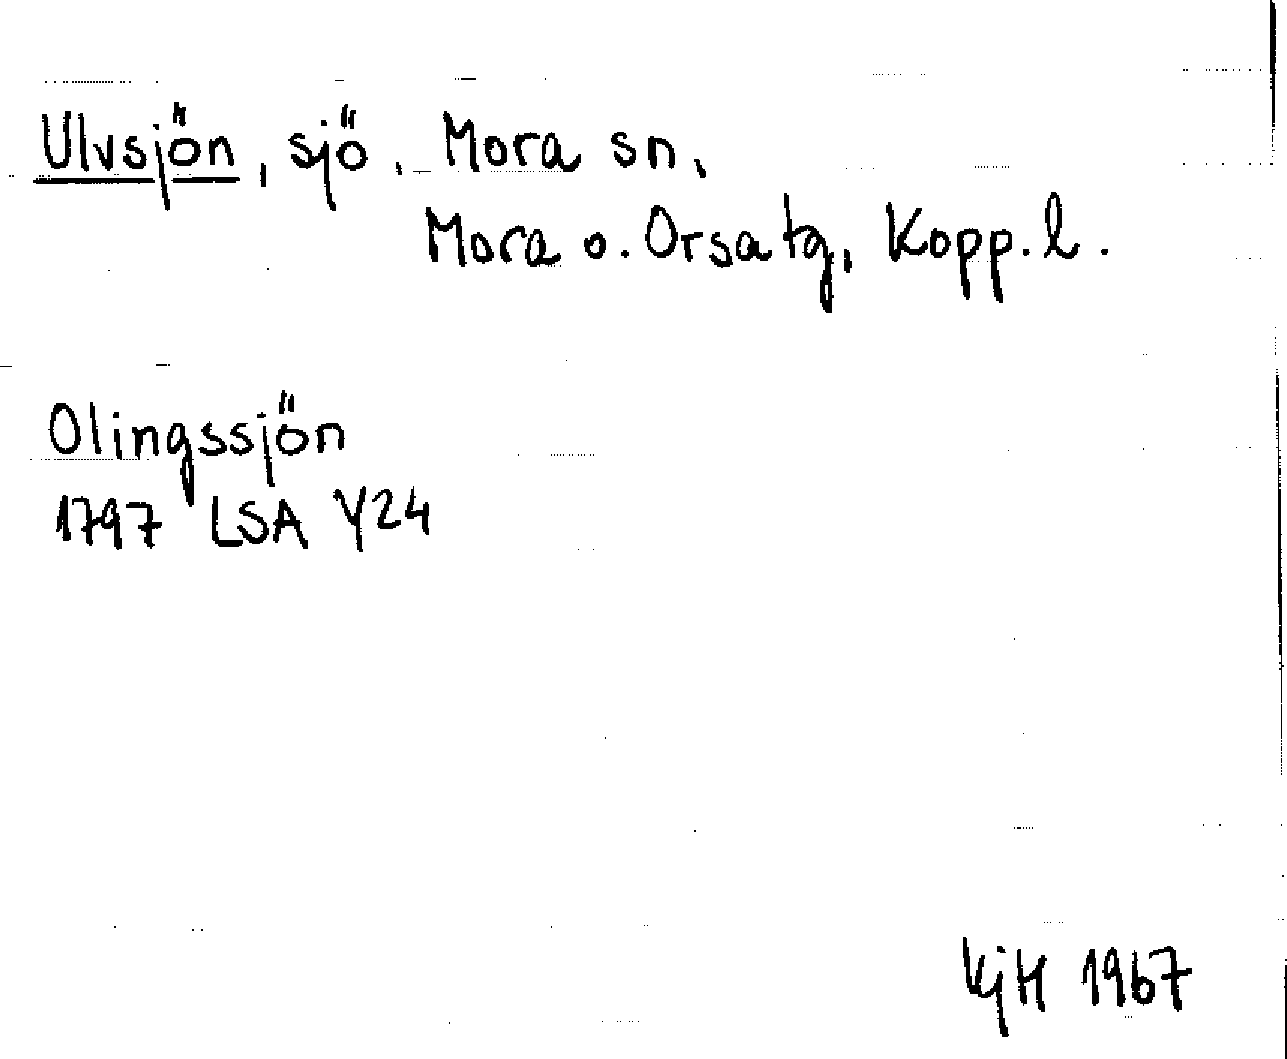 Ulvsjön, sjö, Mora sn,
Mora o. Orsa tg, Kopp. l.
Olingssjön
1797 LSA Y24
KjH 1967